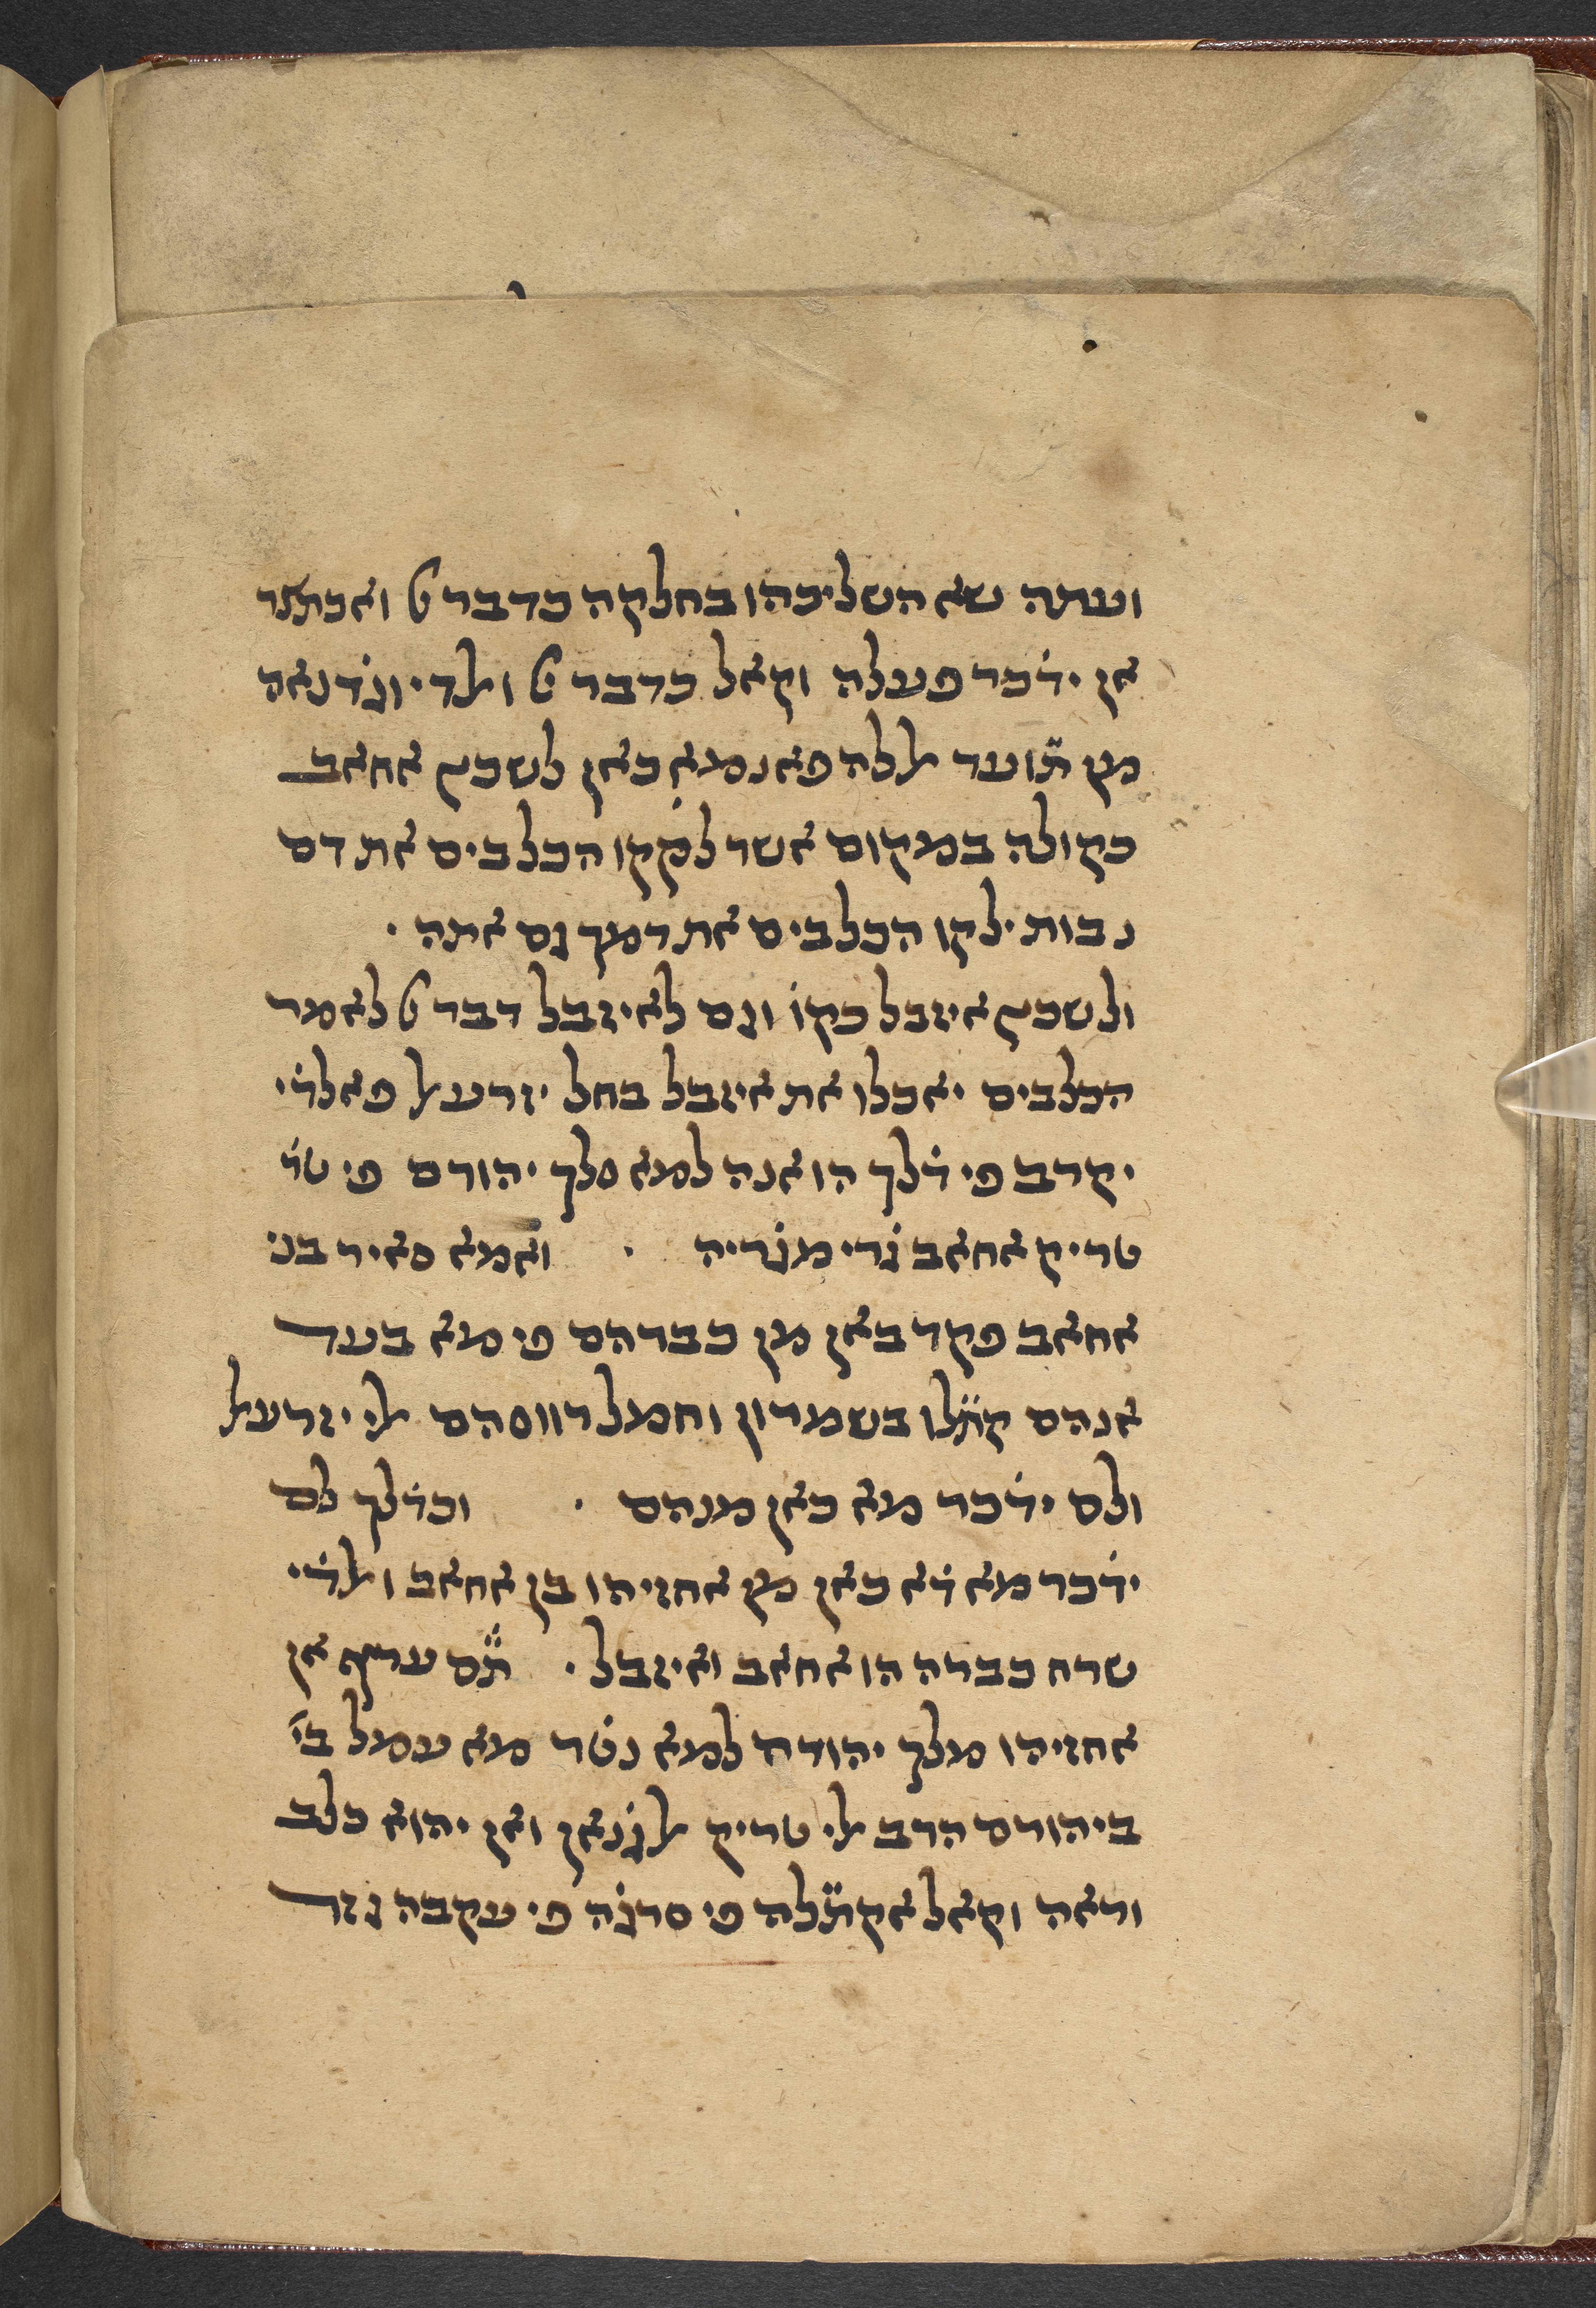 ועתה שא השליכהו בחלקה כדבר יי ואכתצר
אן ידׄכר פעלה וקאל כדבר יי ואלדי וגׄדנאה
מן תׄועד אללה פאנמא כאן לשכץ אחאב
כקולה במקום אשר לקׄקו הכלבים את דם
נבות ילקו הכלבים את דמך גם אתה ·
ולשכץ איזבל כקוׄ וגם לאיזבל דבר יי לאמר
הכלבים יאכלו את איזבל בחל יזרעאל פאלדׄי
יקרב פי דׄלך הו אנה למא סלך יהורם פי טׄרׄ
טריק אחאב גׄרי מגׄריה · ואמא סאיר בני
אחאב פקד באן מן כברהם פי מא בעד
אנהם קתׄלו בשמרון וחמל רווסהם אלי יזרעאל
ולם ידׄכר מא כאן מנהם · וכדׄלך לם
ידׄכר מא דׄא כאן מן אחזיהו בן אחאב ואלדׄי
שרח כברה הו אחאב ואיזבל · תׄם ערף אן
אחזיהו מלך יהודה למא נטׄר מא עמל ביׄ
ביהורם הרב אלי טריק אלגׄנאן ואן יהוא כלב
וראה וקאל אקתׄלה פי סרגׄה פי עקבה גזר